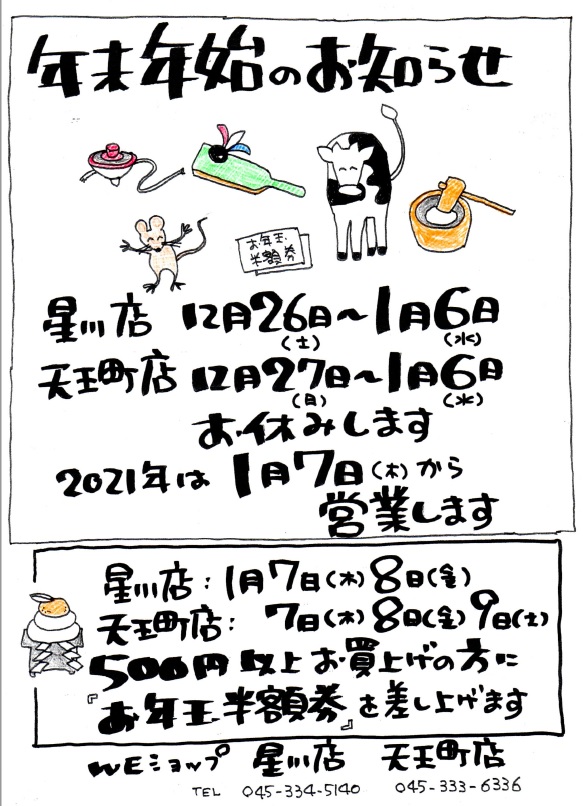 年末年始のお知らせ
お年玉
半額券
星川店 12月26日~1月6日
(土) (水)
天王町店 12月27日~1月6日
(日) (水)
お休みします
2021年は 1月7日(木)から
営業します
星川店:1月7日(木)8日(金)
天王町店: 7日(木)8日(金)9日(土)
500円以上お買上げの方に
『お年玉半額券』を差し上げます
WEショップ 星川店 天王町店
TEL 045-334-5140 045-333-6336